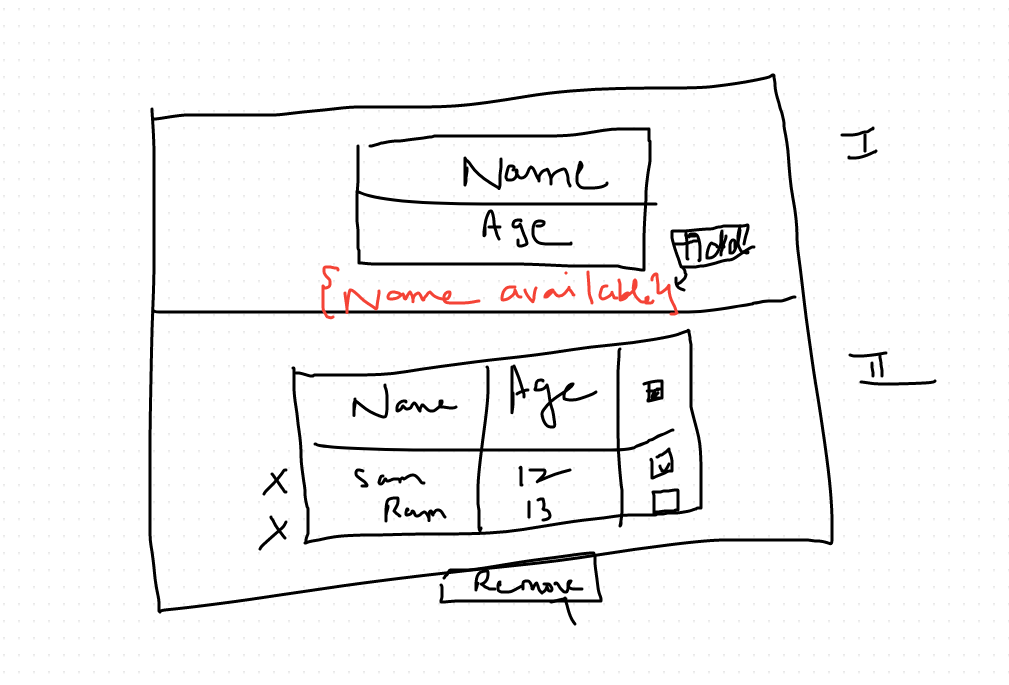 Name
I
Age
Add
{Name available}
II
Name Age
X Sam 12
X Ram 13
Remove